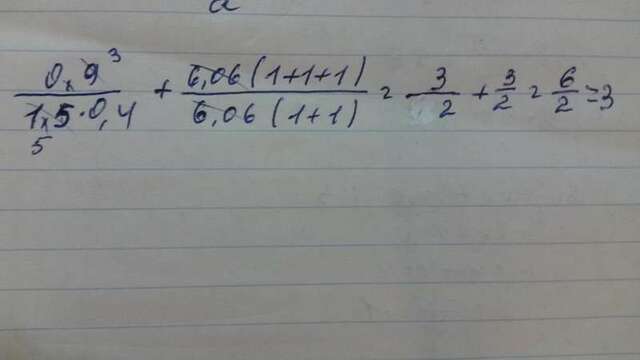 0,9 3 / 1,5 · 0,4 5 + 6,06 (1+1+1) / 6,06 (1+1) = 3 / 2 + 3/2 = 6/2 = 3